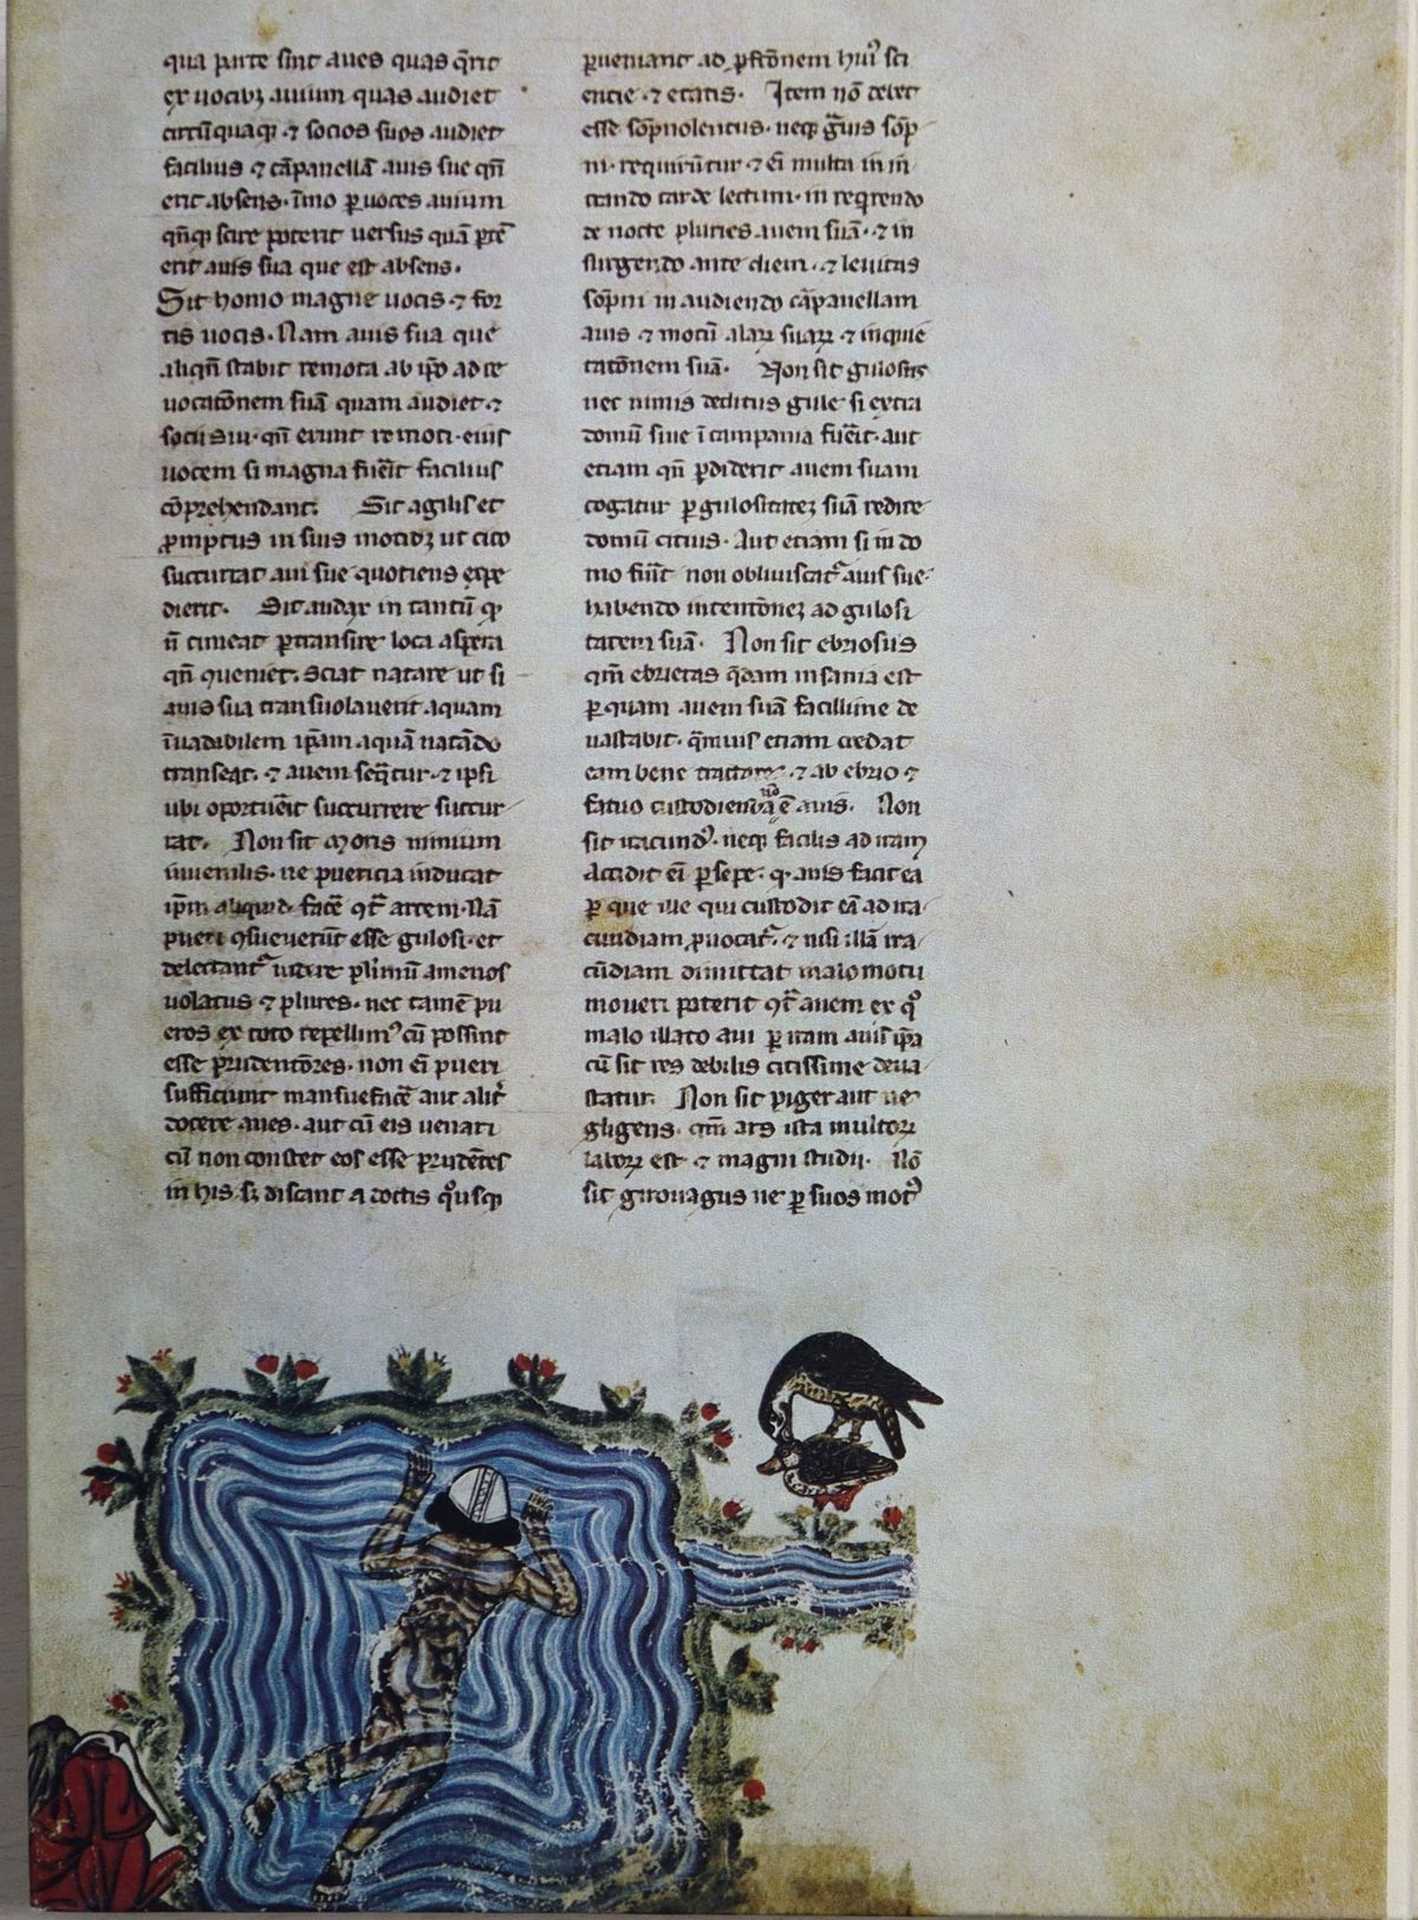 qua parte sint aues quas q̄rit
ex uocibꝫ auium quas audiet
circūquaqꝫ ⁊ socios suos audiet
facilius ⁊ cāpanellā auis sue qn̄
erit absens · īmo ꝑ uoces auium
qn̄qꝫ scire poterit uersus quā ꝑtē
erit auis sua que est absens.
Sit homo magne uocis ⁊ for
tis uocis. Nam auis sua que
aliqn̄ stabit remota ab ip̄o ad re
uocatōnem suā quam audiet ⁊
socii sui · qn̄ erunt remoti · eius
uocem si magna fuēit facilius
cōprehendant. Sit agilis et
ꝓmptus in suis motibꝫ ut cito
succurrat aui sue quotiens expe
dierit. Sit audax in tantū qꝫ
n̄ timeat ꝑtransire loca aspera
qn̄ ꝯueniet. Sciat natare ut si
auis sua transuolauerit aquam
īuadibilem ip̄am aquā natādo
transeat. ⁊ auem seq̄tur · ⁊ ipsi
ubi oportuēit succurrere succur
rat. Non sit moris nimium
iuuenilis · ne puericia inducat
ip̄m aliquid facē ꝯt̄ artem · Nā
pueri ꝯsueuerūt esse gulosi · et
delectant᷑ uidere pl̄imū amenos
uolatus ⁊ plures · nec tamē pu
eros ex toto repellimꝰ cū possint
esse prudentōres · non ei pueri
sufficiunt mansuefacē aut alit̄
docere aues · aut cū eis uenari
cū non constet eos esse prudētes
in his · sꝫ discant a doctis qͦusqꝫ
ꝑueniant ad ꝑfctōnem huiꝰ sci
encie · ⁊ etatis. Item nō debet
esse sōpnolentus · neqꝫ gͣuis sōp
ni · requirūtur ⁊ ei multa in in
trando tarde lectum · in reqrendo
de nocte pluries auem suā · ⁊ in
surgendo ante diem · ⁊ leuitas
sōpni in audiendo cāpanellam
auis ⁊ motū alaꝝ suaꝝ ⁊ inquie
tatōnem suā. Non sit gulosus
nec nimis deditus gule si extra
domū siue ī campania fuēit · aut
etiam qn̄ ꝑdiderit auem suam
cogatur ꝑ gulositateꝫ suā redire
domū citius · Aut etiam si in do
mo fuīt non obliuiscat᷑ auis sue
habendo intentōneꝫ ad gulosi
tatem suā. Non sit ebriosus
qm̄ ebrietas q̄dam insania est
ꝑ quam auem suā facillime de
uastabit · q̄muis etiam credat
eam bene tractare · ⁊ ab ebrio ⁊
fatuo custodienda nō ē auis. Non
sit iracundꝰ · neqꝫ facilis ad iram
Accidit ei ꝑ sepe · q · auis facit ea
ꝑ que ille qui custodit eā ad ira
cundiam ꝓuocat᷑ · ⁊ nisi illā ira
cūdiam dimittat malo motu
moueri poterit ꝯt̄ auem ex qͦ
malo illato aui ꝑ iram auis ip̄a
cū sit res debilis citissime deua
statur. Non sit piger aut ne
gligens · qm̄ ars ista multoꝝ
laboꝝ est ⁊ magni studii. Nō
sit girouagus ne ꝑ suos motꝰ